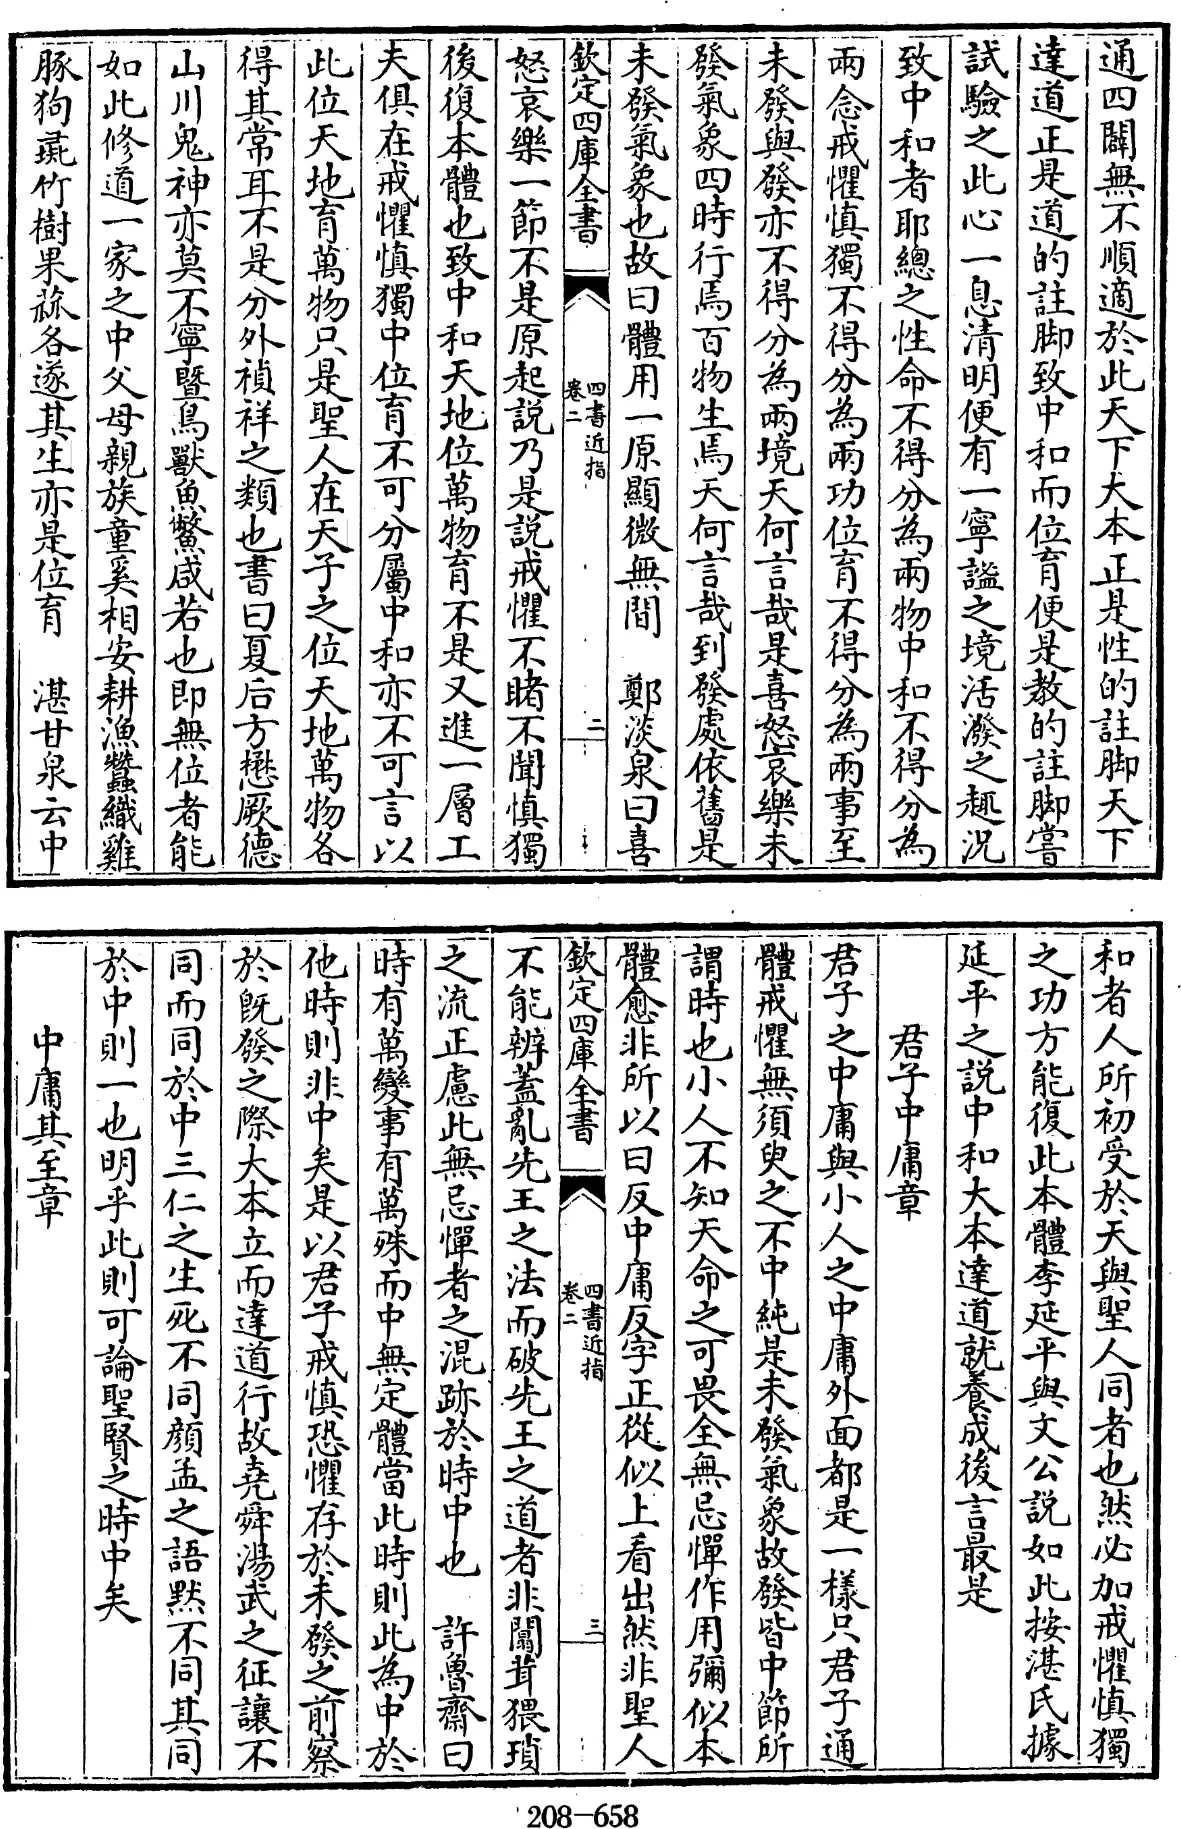 通四闢無不順適於此天下大本正是性的註脚天下
達道正是道的註脚致中和而位育便是教的註脚嘗
試驗之此心一息清明便有一寧謐之境活潑之趣況
致中和者耶總之性命不得分為兩物中和不得分為
兩念戒懼慎獨不得分為兩功位育不得分為兩事至
未發與發亦不得分為兩境天何言哉是喜怒哀樂未
發氣象四時行焉百物生焉天何言哉到發處依舊是
未發氣象也故曰體用一原顯微無間　鄭淡泉曰喜
欽定四庫全書
四書近指
卷二
二
怒哀樂一節不是原起說乃是說戒懼不睹不聞慎獨
後復本體也致中和天地位萬物育不是又進一層工
夫俱在戒懼慎獨中位育不可分屬中和亦不可言以
此位天地育萬物只是聖人在天子之位天地萬物各
得其常耳不是分外禎祥之類也書曰夏后方懋厥德
山川鬼神亦莫不寧暨鳥獸魚鱉咸若也即無位者能
如此修道一家之中父母親族童奚相安耕漁蠶織雞
豚狗彘竹樹果蓏各遂其生亦是位育　湛甘泉云中
和者人所初受於天與聖人同者也然必加戒懼慎獨
之功方能復此本體李延平與文公說如此按湛氏據
延平之說中和大本達道就養成後言最是
君子中庸章
君子之中庸與小人之中庸外面都是一樣只君子通
體戒懼無須臾之不中純是未發氣象故發皆中節所
謂時也小人不知天命之可畏全無忌憚作用彌似本
體愈非所以曰反中庸反字正從似上看出然非聖人
欽定四庫全書
四書近指
卷二
三
不能辨蓋亂先王之法而破先王之道者非闒茸猥瑣
之流正慮此無忌憚者之混跡於時中也　許魯齋曰
時有萬變事有萬殊而中無定體當此時則此為中於
他時則非中矣是以君子戒慎恐懼存於未發之前察
於既發之際大本立而達道行故堯舜湯武之征讓不
同而同於中三仁之生死不同顏孟之語默不同其同
於中則一也明乎此則可論聖賢之時中矣
中庸其至章
208-658